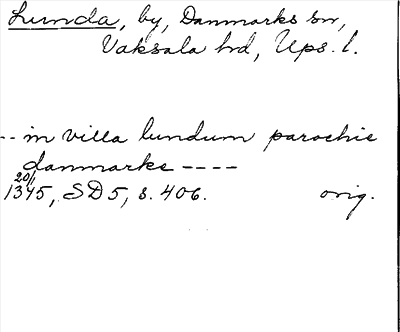 Lunda, by, Danmarks sn,
Vaksala hd, Ups. l.
-- in villa lundum parochie
danmarke ----
20/1
1345, SD 5, s. 406. orig.